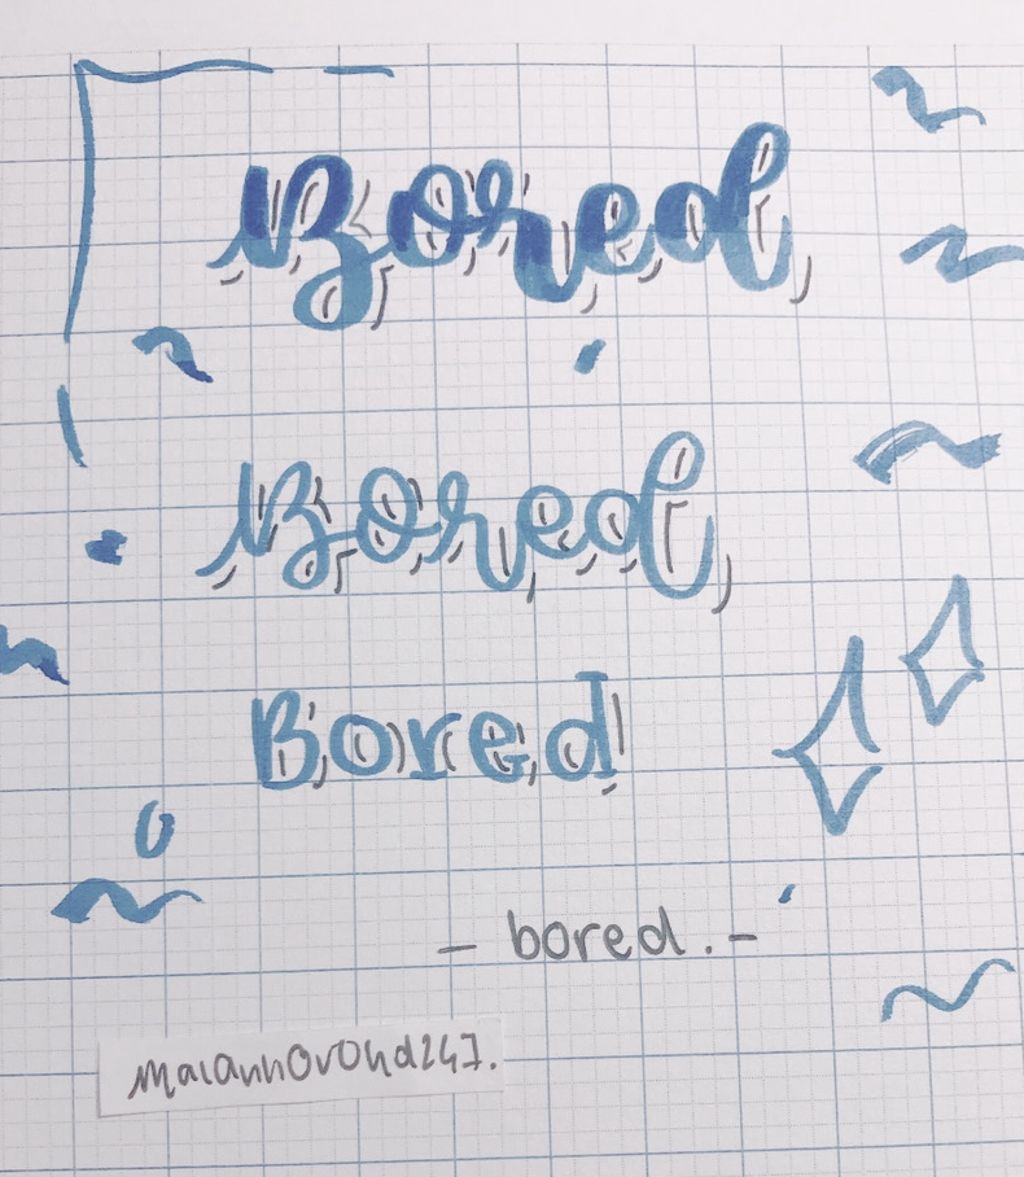 Bored
Bored
Bored
- bored. -
maiannorond247.